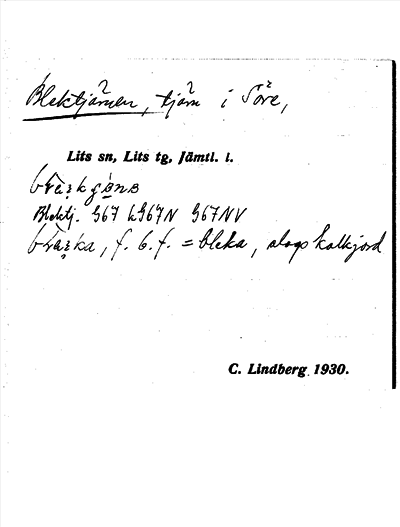 Blektjärnen, tjärn i Söre,
Lits sn, Lits tg, Jämtl. l.
Blektj. 967 L967N 967NV
f. b. f. = bleka, slags kalkjord
C. Lindberg 1930.